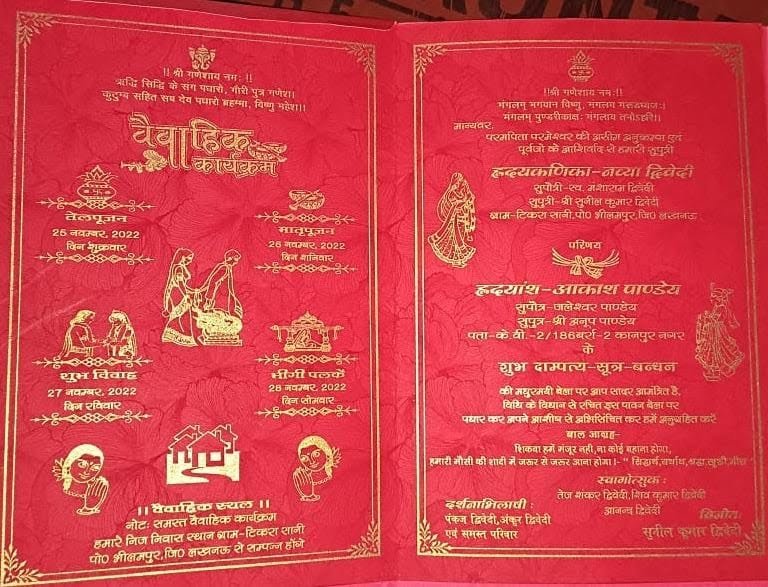 !! श्री गणेशाय नमः !!
ऋद्धि सिद्धि के संग पधारो, गौरी पुत्र गणेश।
कुटुम्ब सहित सब देव पधारो ब्रहम्मा, विष्णु महेश।।
वैवाहिक
कार्यक्रम
तेलपूजन
25 नवम्बर, 2022
दिन शुक्रवार
मातृपूजन
26 नवम्बर, 2022
दिन शनिवार
शुभ विवाह
27 नवम्बर, 2022
दिन रविवार
भीगी पलकें
28 नवम्बर, 2022
दिन सोमवार
।। वैवाहिक स्थल ।।
नोटः समस्त वैवाहिक कार्यक्रम
हमारे निज निवास स्थान ग्राम-टिकरा सानी
पो0 भीलमपुर, जि0 लखनऊ से सम्पन्न होंगे
।।श्री गणेशाय नमः।।
मंगलम् भगवान विष्णु, मंगलम गरूडध्वजः।
मंगलम् पुण्डरीकाक्षः मंगलाय तनोऽहरि।।
मान्यवर,
परमपिता परमेश्वर की असीम अनुकम्पा एवं
पूर्वजो के आशिर्वाद से हमारी सुपुत्री
ह्रदयकणिका-नव्या द्विवेदी
सुपौत्री-स्व. मंशाराम द्विवेदी
सुपुत्री-श्री सुनील कुमार द्विवेदी
ग्राम-टिकरा सानी,पो0 भीलमपुर,जि0 लखनऊ
परिणय
ह्रदयांश-आकाश पाण्डेय
सुपौत्र-जलेश्वर पाण्डेय
सुपुत्र-श्री अनूप पाण्डेय
पता-के.वी.-2/186बर्रा-2 कानपुर नगर
के
शुभ दाम्पत्य-सूत्र-बन्धन
की मधुरमयी बेला पर आप सादर आमंत्रित है,
विधि के विधान से रचित इस पावन बेला पर
पधार कर अपने आशीष से अभिसिंचित कर हमें अनुग्रहित करें
बाल आग्रह-
शिकवा हमें मंजूर नही,ना कोई बहाना होगा,
हमारी मौसी की शादी में जरूर से जरूर आना होगा।-" सिद्धार्थ,
स्वागोत्सुक :
तेज शंकर द्विवेदी, शिव कुमार द्विवेदी
आनन्द द्विवेदी
दर्शनाभिलाषी :
पंकज द्विवेदी,अंकुर द्विवेदी
एवं समस्त परिवार
विनीतः
सुनील कुमार द्विवेदी